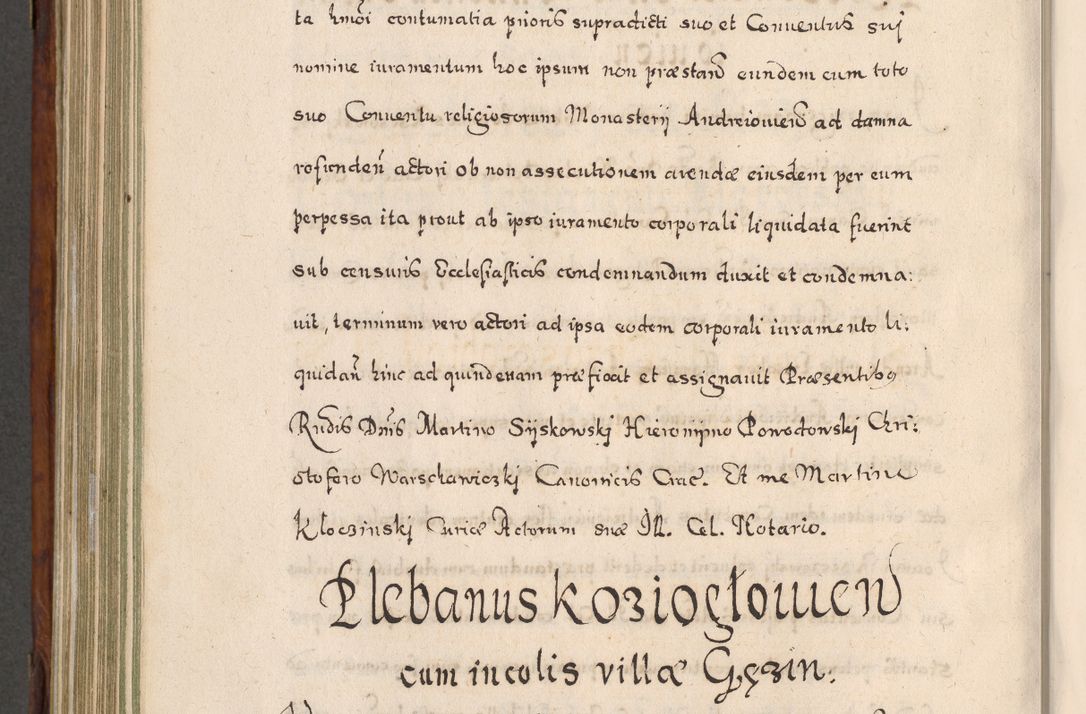 ta hmōi contumatia prioris supradicti suo et Conventus sui
nomine iuramentum hoc ipsum non præstan eundem cum toto
suo Conventu religiosorum Monasterij Andreiovien ad damna
refunden actori ob non assecutionem arendæ eiusdem per eum
perpessa ita prout ab ipso iuramento corporali liquidata fuerint
sub censuris Ecclesiasticis condemnandum duxit et condemna:
uit, terminum vero actori ad ipsa eodem corporali iuramento li:
quidan hinc ad quindenam præfixit et assignauit Præsentibus
Rndis Dnis Martino Sÿskowskj Hieronijmo Powodowskj Chri:
stoforo Warschawiczkj Canonicis Crac. Et me Martino
Kłoczinskj Curiæ Actorum suæ Ill. Cel. Notario.
Plebanus koziogłowien
cum incolis villæ Gęzin.